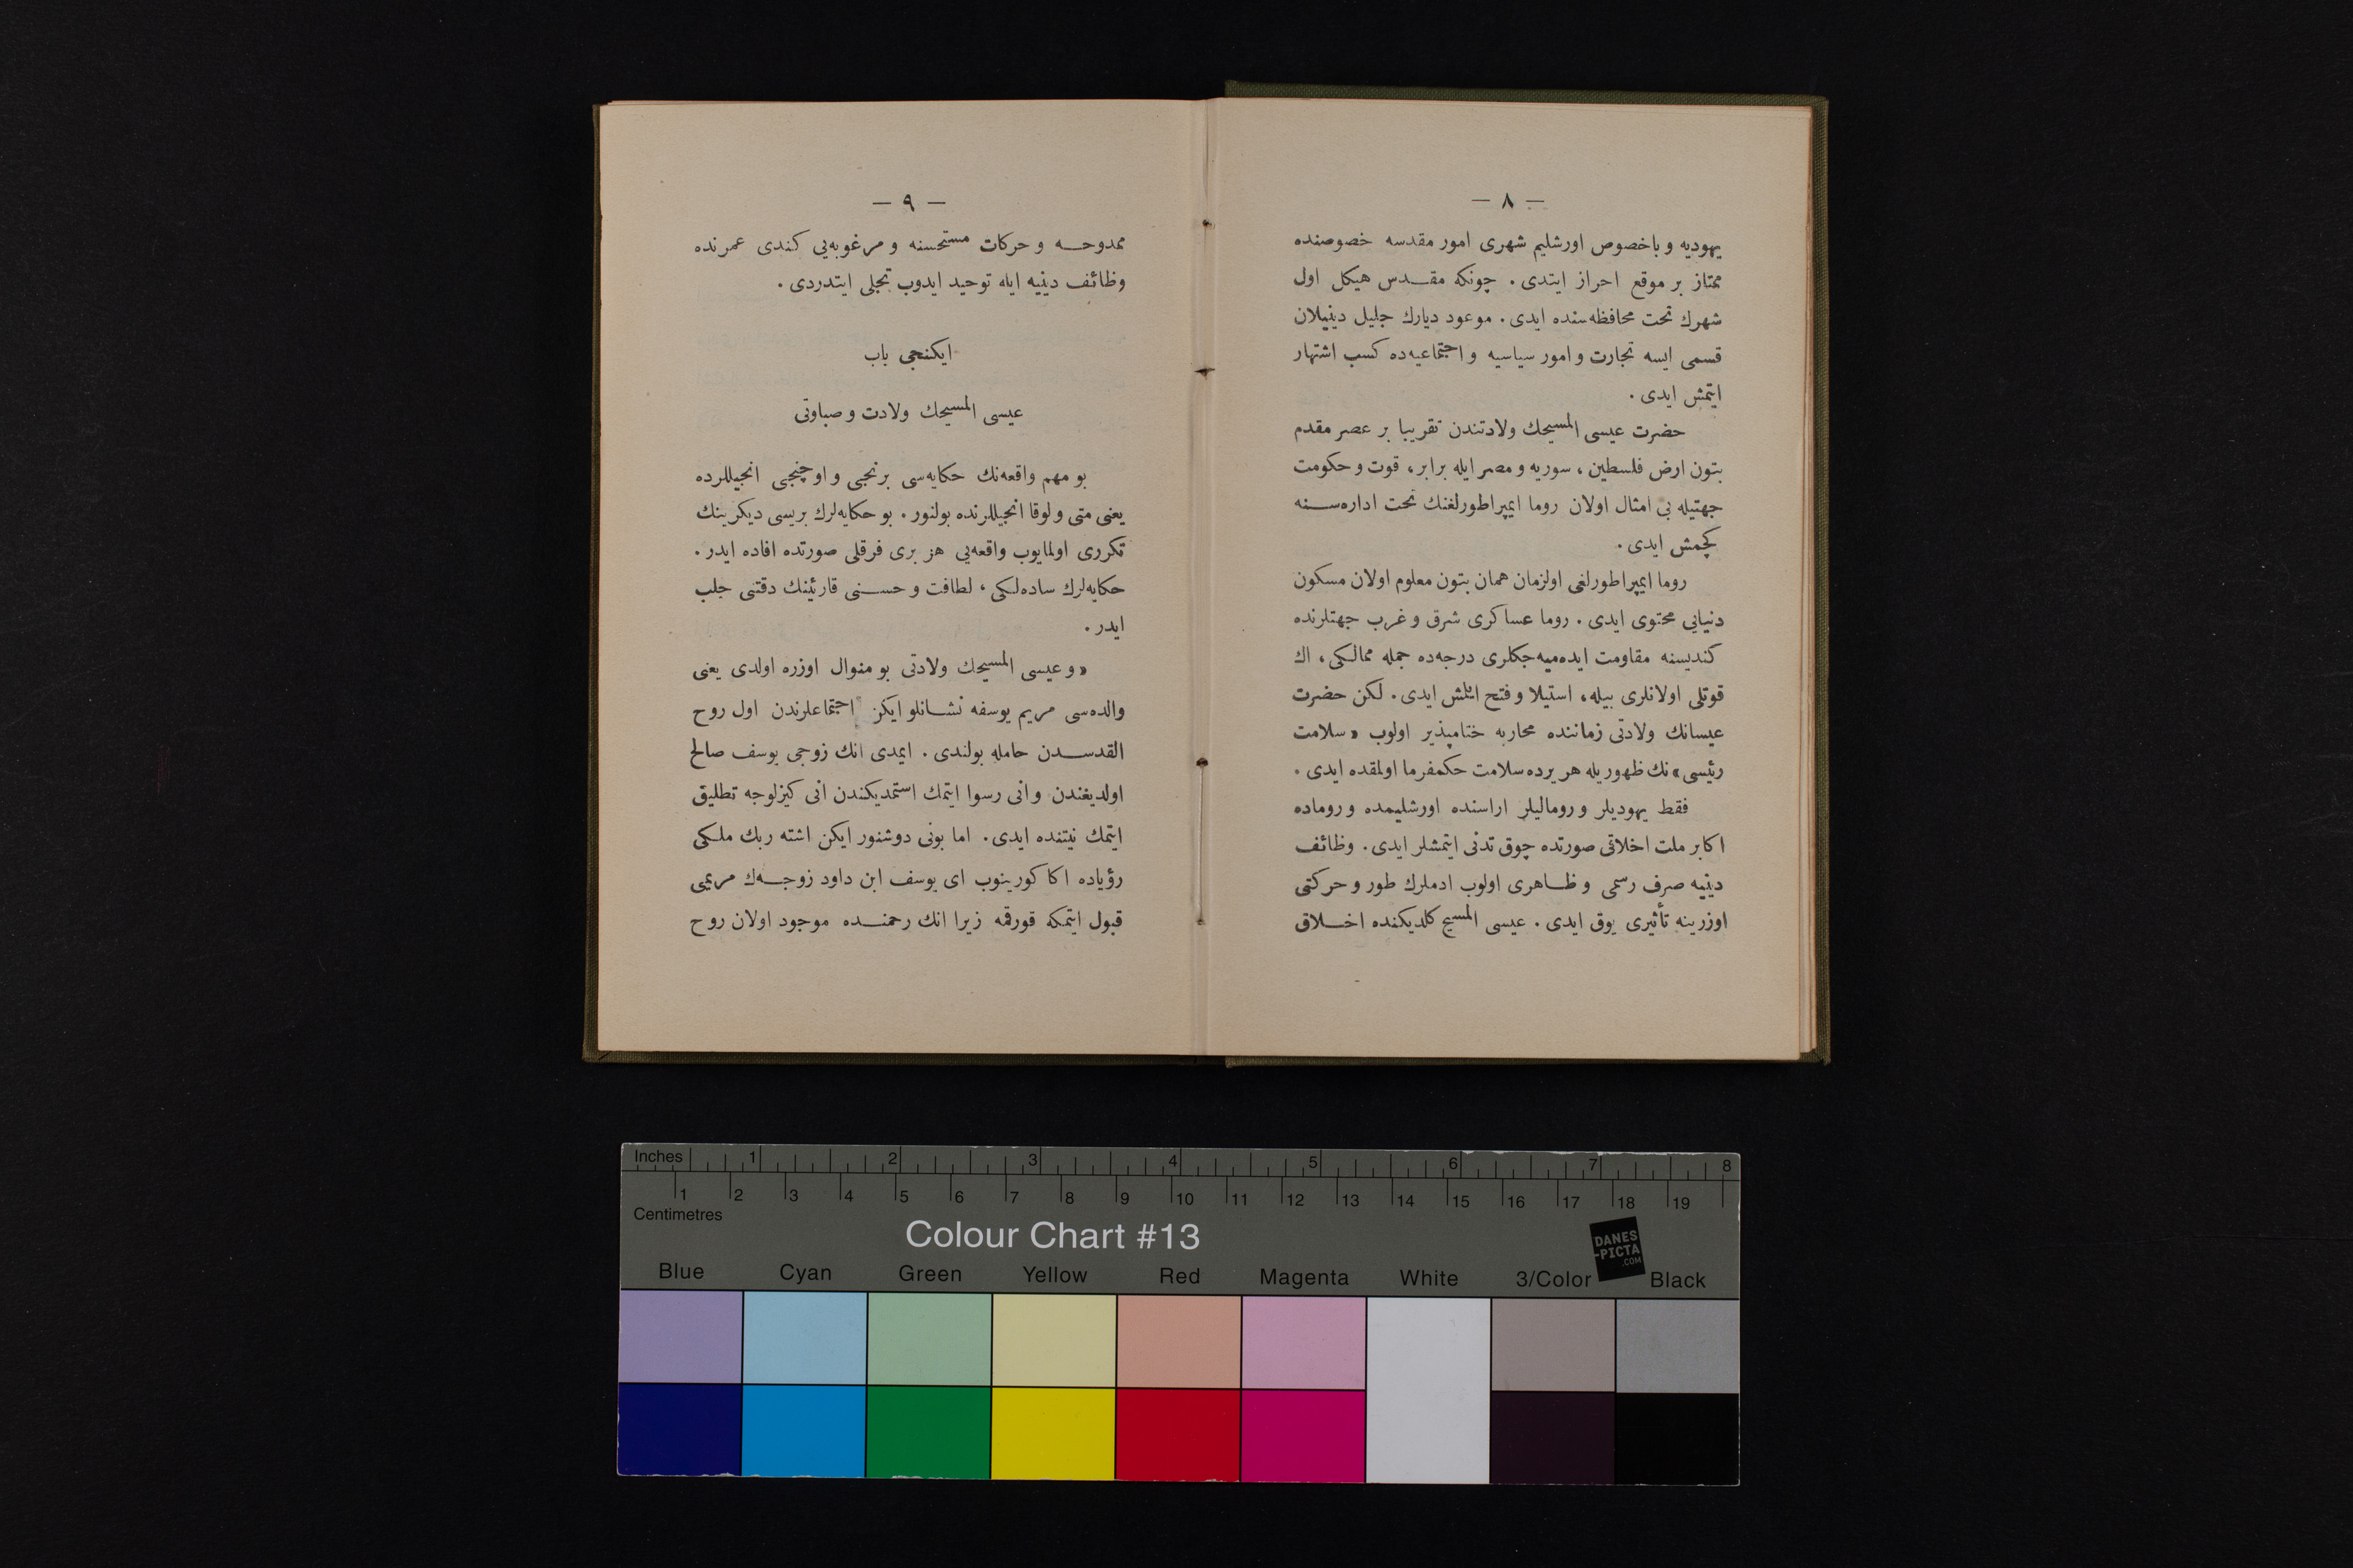 — ٨ —
يهوديه و باخصوص اورشليم شهرى امور مقدسه خصوصنده
ممتاز بر موقع احراز ايتدى . چونكه مقدس هيكل اول
شهرك تحت محافظه‌سنده ايدى . موعود ديارك جليل دينيلان
قسمى ايسه تجارت و امور سياسيه و اجتماعيه‌ده كسب اشتهار
ايتمش ايدى .
حضرت عيسى المسيحك ولادتندن تقريبا بر عصر مقدم
بتون ارض فلسطين ، سوريه و مصر ايله برابر ، قوت و حكومت
جهتيله بى امثال اولان روما ايمپراطورلغنك تحت اداره‌سنه
كچمش ايدى .
روما ايمپراطورلغى اولزمان همان بتون معلوم اولان مسكون
دنيايى محتوى ايدى . روما عساكرى شرق و غرب جهتلرنده
كنديسنه مقاومت ايده‌ميه‌جكلرى درجه‌ده جمله ممالكى ، اك
قوتلى اولانلرى بيله ، استيلا و فتح ايتمش ايدى . لكن حضرت
عيسانك ولادتى زماننده محاربه ختامپذير اولوب « سلامت
رئيسى » نك ظهوريله هر يرده سلامت حكمفرما اولمقده ايدى .
فقط يهوديلر و روماليلر اراسنده اورشليمده و روماده
اكابر ملت اخلاقى صورتده چوق تدنى ايتمشلر ايدى . وظائف
دينيه صرف رسمى و ظاهرى اولوب ادملرك طور و حركتى
اوزرينه تأثيرى يوق ايدى . عيسى المسيح كلديكنده اخلاق
— ٩ —
ممدوحه و حركات مستحسنه و مرغوبه‌يى كندى عمرنده
وظائف دينيه ايله توحيد ايدوب تجلى ايتدردى .
ايكنجى باب
عيسى المسيحك ولادت و صباوتى
بو مهم واقعه‌نك حكايه‌سى برنجى و اوچنجى انجيللرده
يعنى متى و لوقا انجيللرنده بولنور . بو حكايه‌لرك بريسى ديكرينك
تكررى اولمايوب واقعه‌يى هر برى فرقلى صورتده افاده ايدر .
حكايه‌لرك ساده‌لكى ، لطافت و حسنى قارئينك دقتنى جلب
ايدر .
« و عيسى المسيحك ولادتى بو منوال اوزره اولدى يعنى
والده‌سى مريم يوسفه نشانلو ايكن اجتماعلرندن اول روح
القدسدن حامله بولندى . ايمدى انك زوجى يوسف صالح
اولديغندن و انى رسوا ايتمك استمديكندن انى كيزلوجه تطليق
ايتمك نيتنده ايدى . اما بونى دوشنور ايكن اشته ربك ملكى
رؤياده اكا كورينوب اى يوسف ابن داود زوجه‌ك مريمى
قبول ايتمكه قورقمه زيرا انك رحمنده موجود اولان روح
Inches 1 2 3 4 5 6 7 8
1 2 3 4 5 6 7 8 9 10 11 12 13 14 15 16 17 18 19
Centimetres
Colour Chart #13
DANES
-PICTA
.COM
Blue Cyan Green Yellow Red Magenta White 3/Color Black